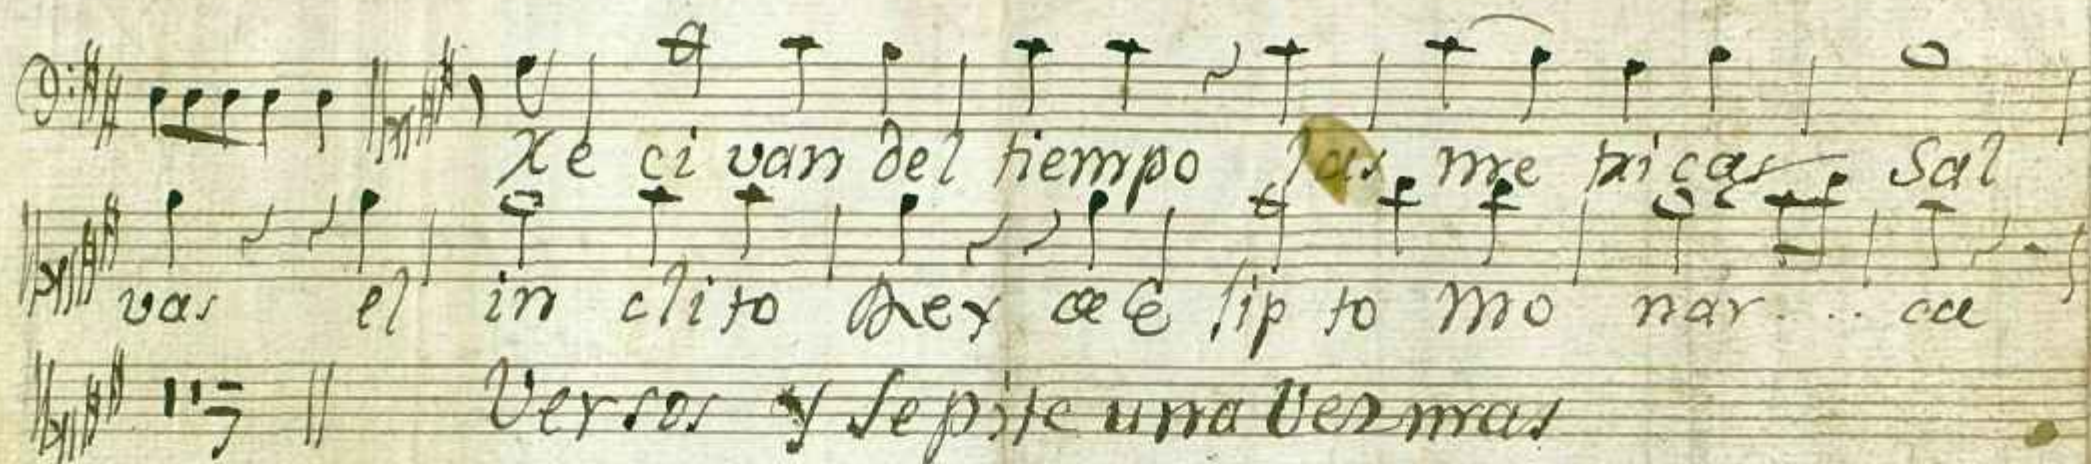 Re ci van del tiempo las me tri cas Sal
vas el in clito Rey de E gip to Mo nar... ca
Versos y Se pite una Vez mas